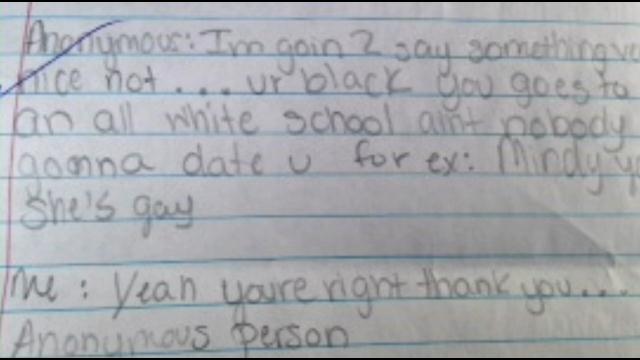 Anonymous: I'm goin 2 say something
nice not... ur black you goes to
an all white school aint nobody
gonna date u for ex: Mindy
She's gay
Me: Yeah youre right thank you...
Anonymous person